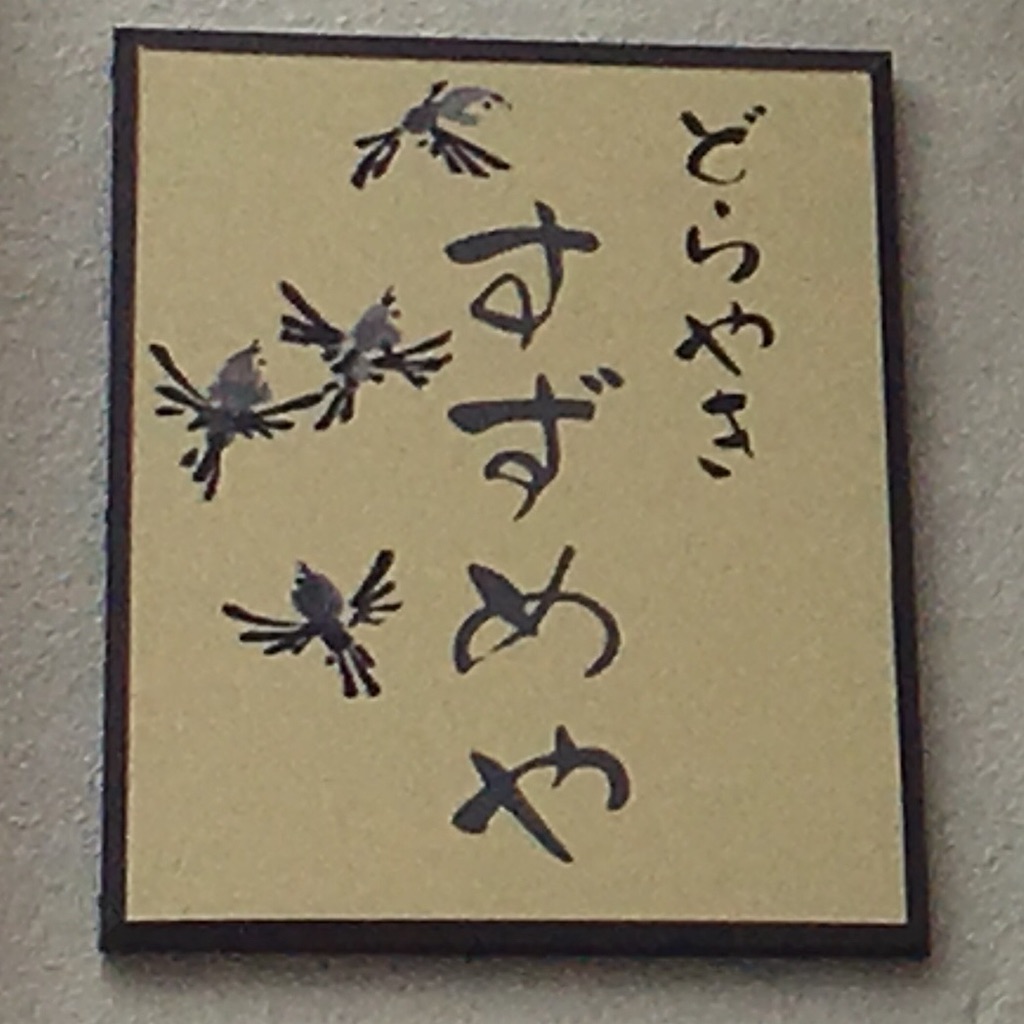 どらやき
すずめや